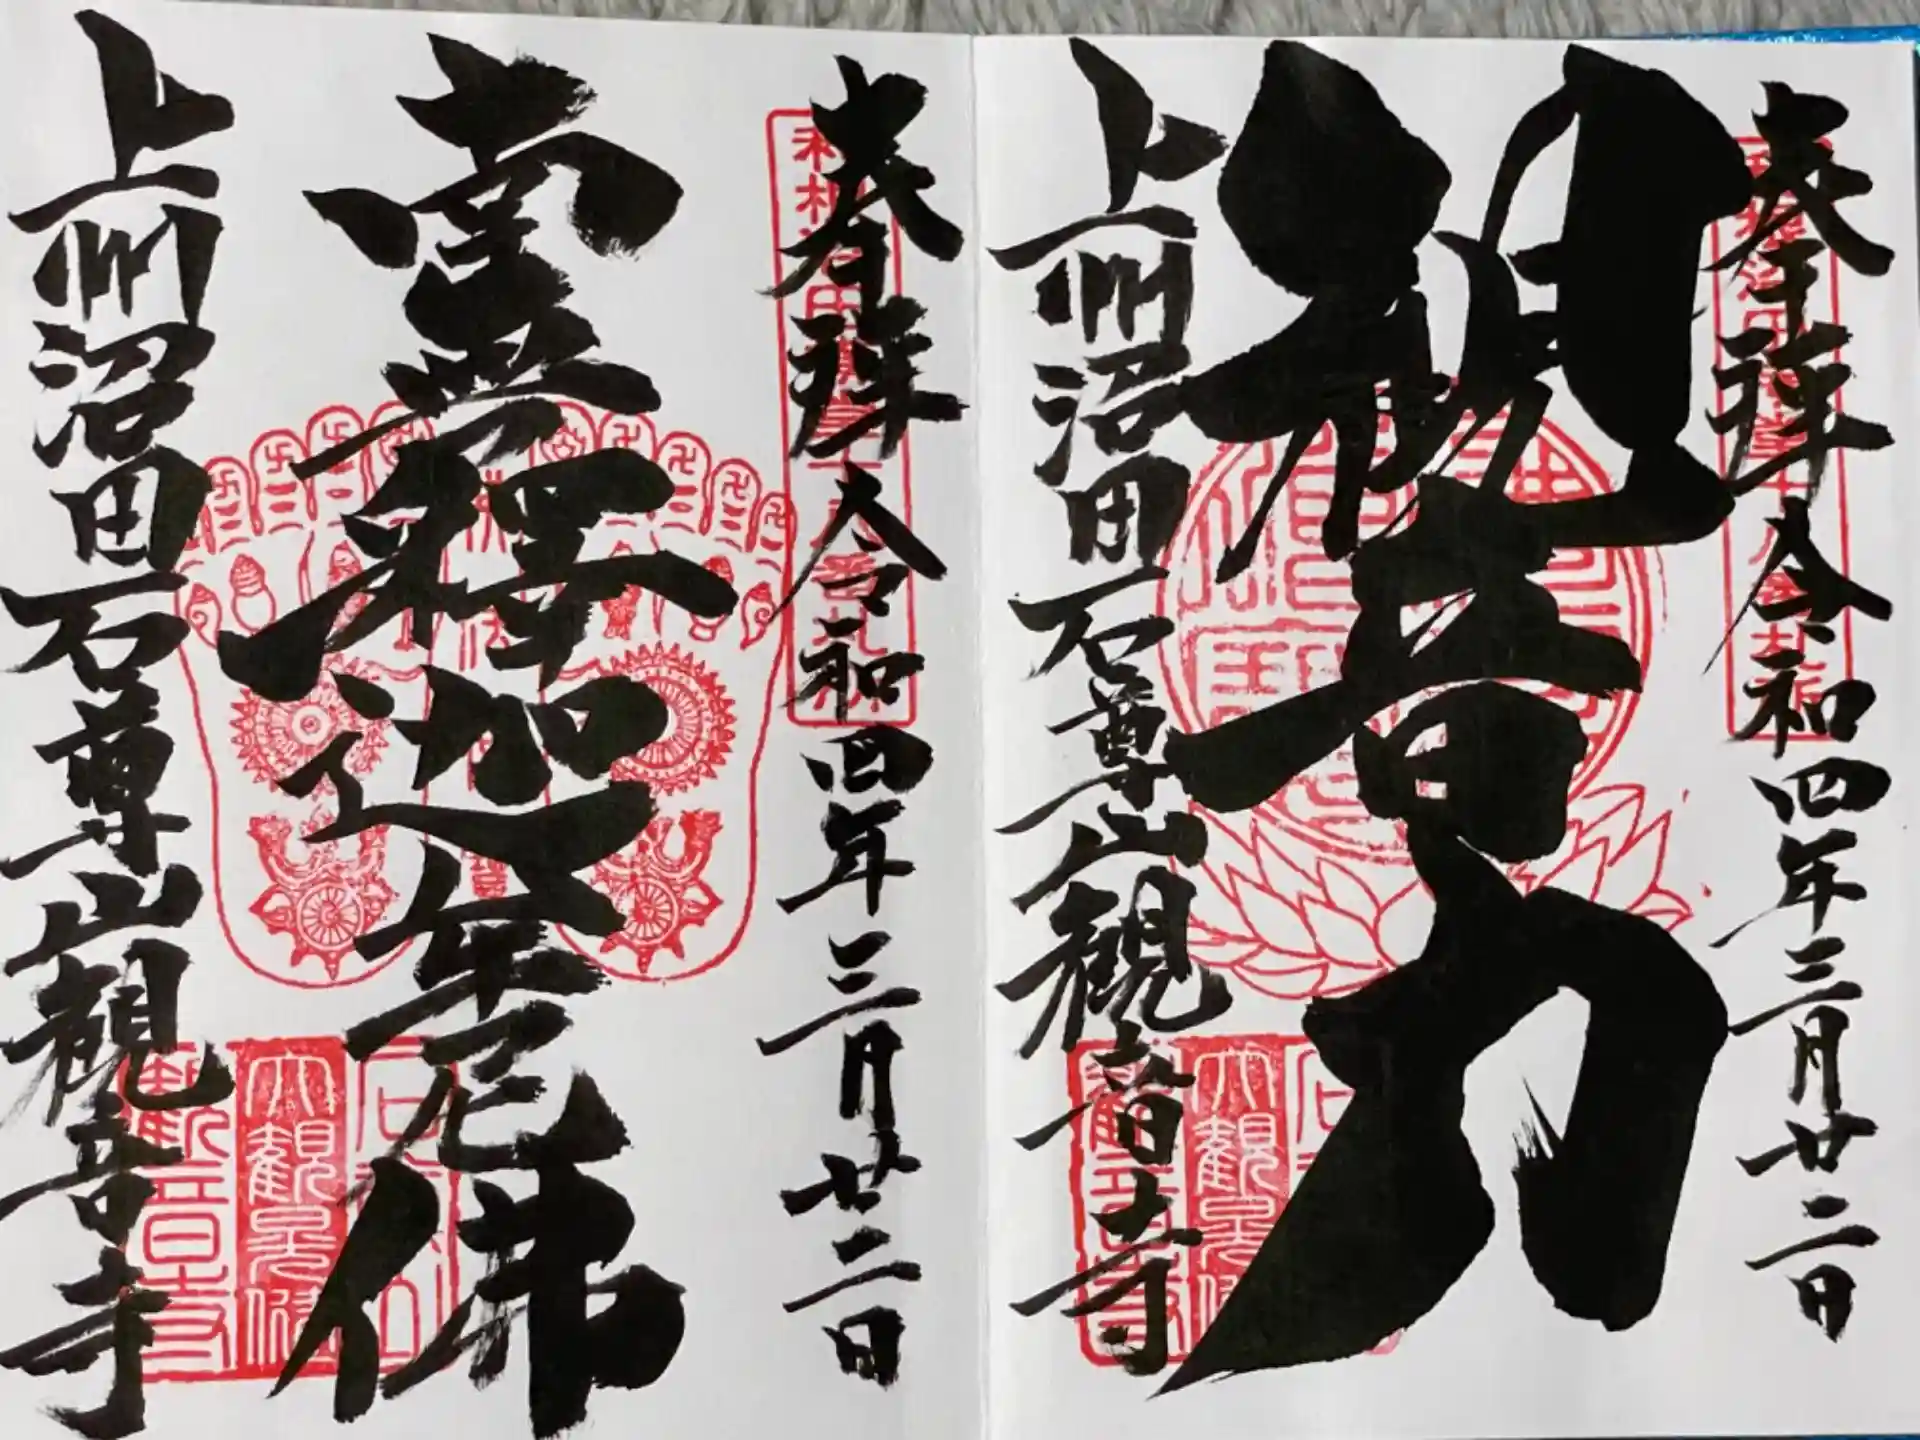 奉拝 令和四年三月廿二日
観音力
上州沼田石尊山観音寺
奉拝 令和四年三月廿二日
南無釋迦牟尼佛
上州沼田石尊山観音寺